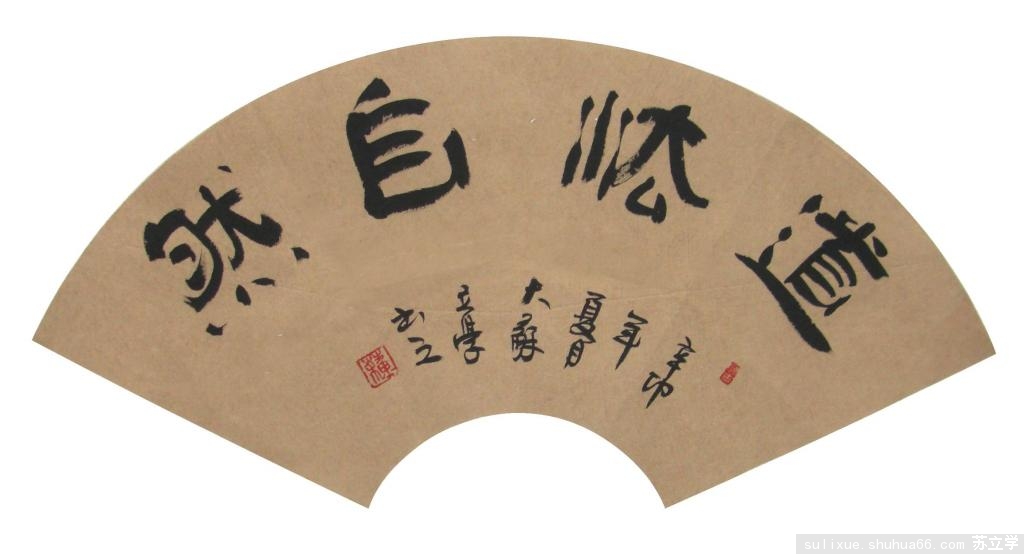 道法自然
辛卯
年
夏月
大蘇
立學
书之
sulixue.shuhua66.com 苏立学